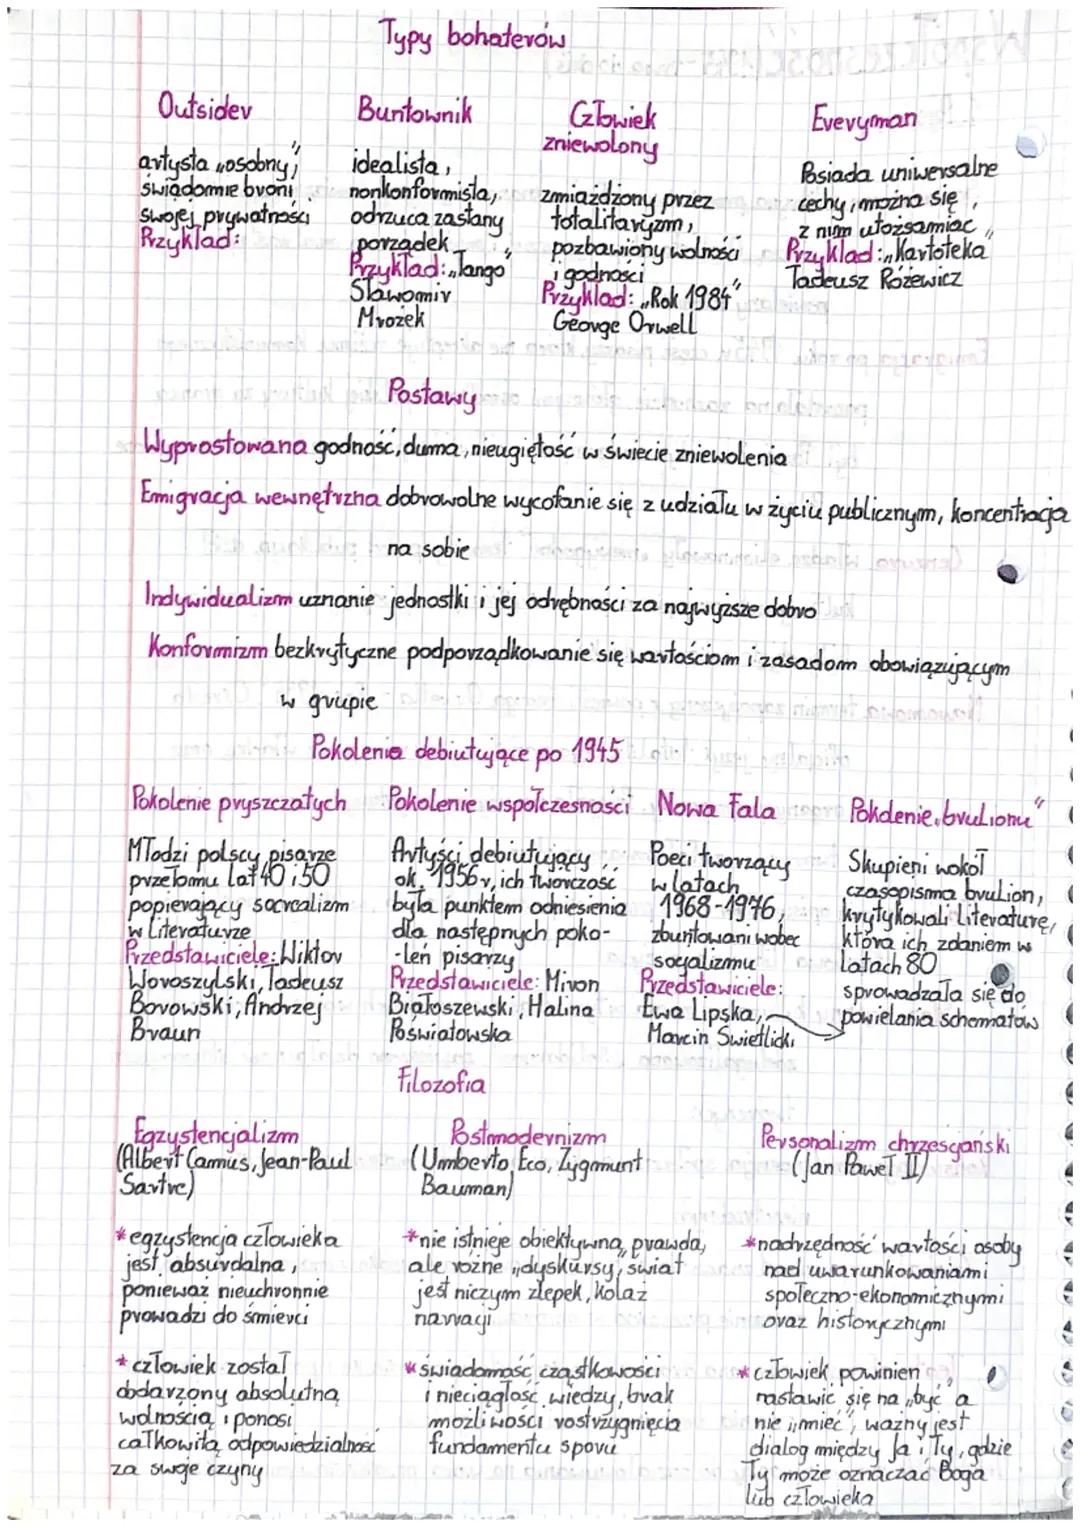 Typy bohaterów
Outsider
artysta „osobny”,
świadomie broni
swojej prywatności
Przykład:
Buntownik
idealista,
nonkonformista,
odrzuca zastany
porządek
Przykład: „Tango”
Sławomir
Mrożek
Człowiek
zniewolony
zmiażdżony przez
totalitaryzm,
pozbawiony wolności
i godności
Przykład: „Rok 1984”
George Orwell
Everyman
Posiada uniwersalne
cechy, można się
z nim utożsamiać
Przykład: „Kartoteka”
Tadeusz Różewicz
Postawy
Wyprostowana godność, duma, nieugiętość w świecie zniewolenia
Emigracja wewnętrzna dobrowolne wycofanie się z udziału w życiu publicznym, koncentracja
na sobie
Indywidualizm uznanie jednostki i jej odrębności za najwyższe dobro
Konformizm bezkrytyczne podporządkowanie się wartościom i zasadom obowiązującym
w grupie
Pokolenia debiutujące po 1945
Pokolenie pryszczatych
Młodzi polscy pisarze
przełomu lat 40 i 50
popierający socrealizm
w literaturze
Przedstawiciele: Wiktor
Woroszylski, Tadeusz
Borowski, Andrzej
Braun
Pokolenie współczesności
Artyści debiutujący
ok. 1956r, ich twórczość
była punktem odniesienia
dla następnych poko-
-leń pisarzy
Przedstawiciele: Miron
Białoszewski, Halina
Poświatowska
Nowa Fala
Poeci tworzący
w latach
1968-1976,
zbuntowani wobec
socjalizmu
Przedstawiciele:
Ewa Lipska,
Marcin Świetlicki
Pokolenie „bruLionu”
Skupieni wokół
czasopisma bruLion,
krytykowali literaturę,
która ich zdaniem w
latach 80
sprowadzała się do
powielania schematów
Filozofia
Egzystencjalizm
(Albert Camus, Jean-Paul
Sartre)
* egzystencja człowieka
jest absurdalna,
ponieważ nieuchronnie
prowadzi do śmierci
* człowiek został
obdarzony absolutną
wolnością i ponosi
całkowitą odpowiedzialność
za swoje czyny
Postmodernizm
(Umberto Eco, Zygmunt
Bauman)
* nie istnieje obiektywna prawda,
ale różne „dyskursy”, świat
jest niczym zlepek, kolaż
narracji
* świadomość cząstkowości
i nieciągłość wiedzy, brak
możliwości rostrzygnięcia
fundamentu sporu
Personalizm chrześcjański
(Jan Paweł II)
* nadrzędność wartości osoby
nad uwarunkowaniami
społeczno-ekonomicznymi
oraz historycznymi
* człowiek powinien
nastawić się na „być” a
nie „mieć”, ważny jest
dialog między Ja i Ty, gdzie
Ty może oznaczać Boga
lub człowieka